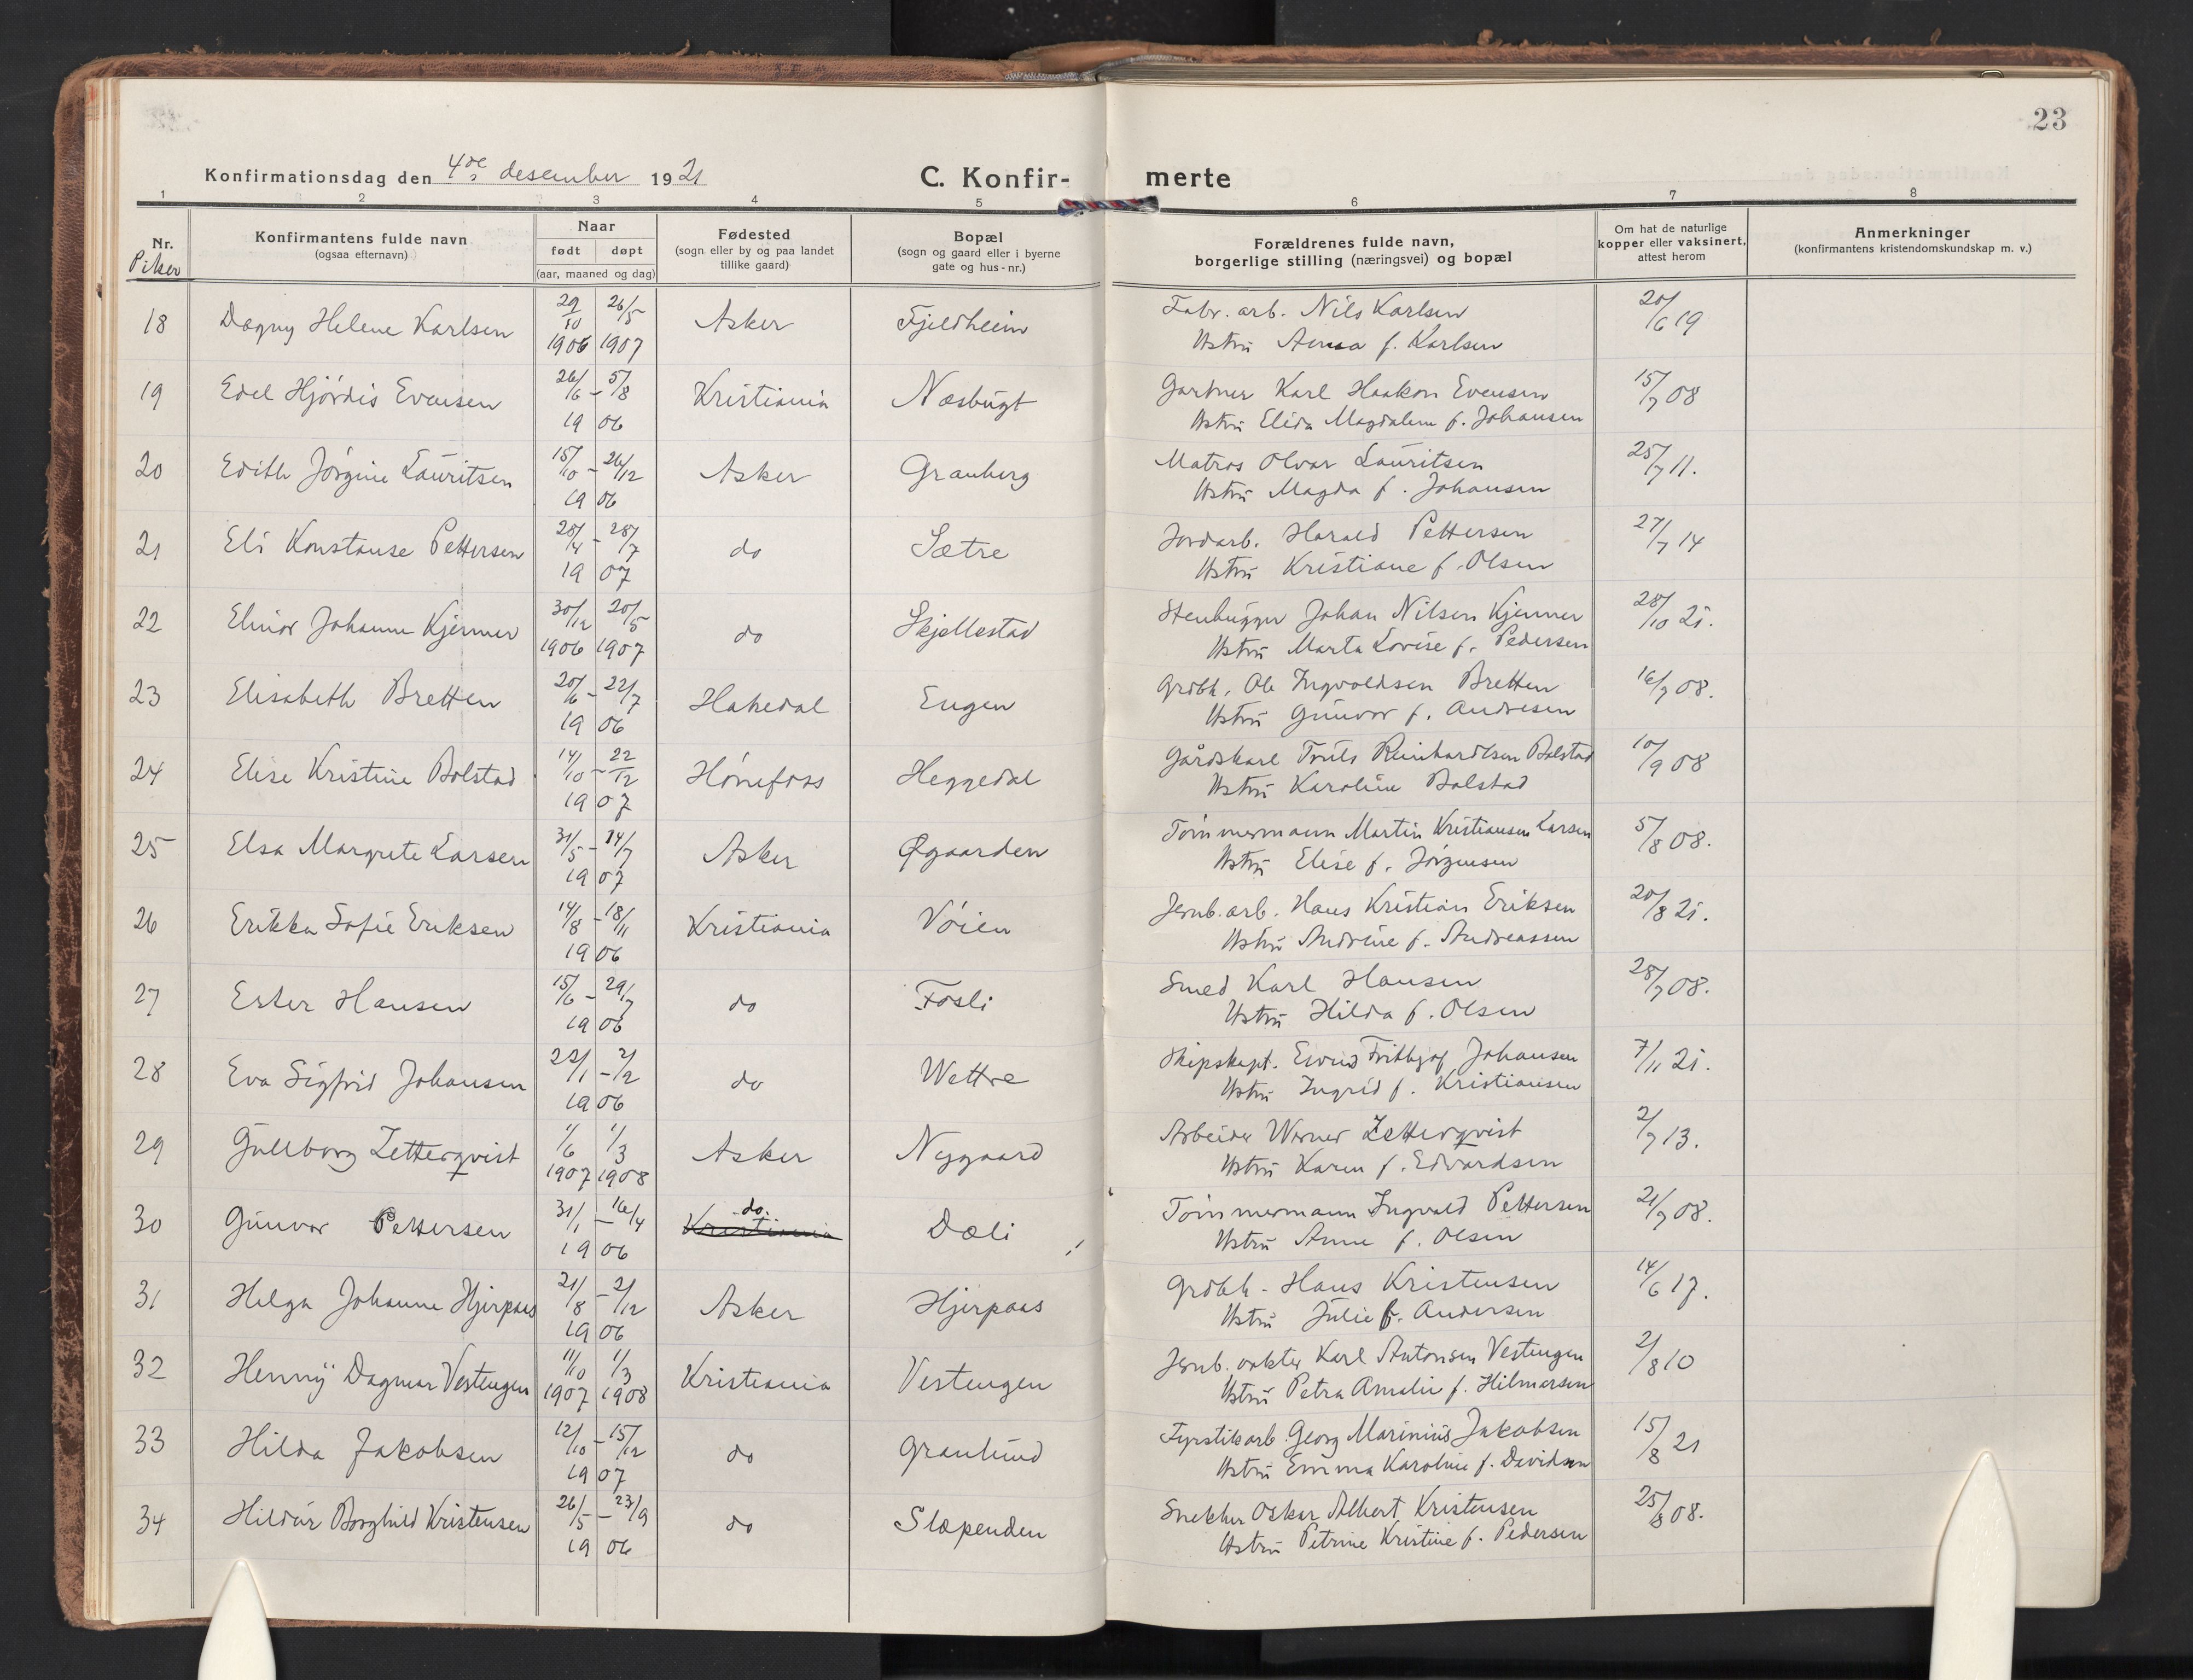 23
Konfirmationsdag den 4de desember 1921
C. Konfir-merte
1 2 3 4 5 6 7 8
Nr.
Piker
Konfirmantens fulde navn
(ogsaa efternavn)
Naar
født døpt
(aar, maaned og dag)
Fødested
(sogn eller by og paa landet
tillike gaard)
Bopæl
(sogn og gaard eller i byerne
gate og hus-nr.)
Forældrenes fulde navn,
borgerlige stilling (næringsvei) og bopæl
Om hat de naturlige
kopper eller vaksinert,
attest herom
Anmerkninger
(konfirmantens kristendomskundskap m. v.)
18 Dagny Helene Karlsen 29/10 1906 26/5 1907 Asker Fjeldheim Fabr. arb. Nils Karlsen 20/6 19
Hstru Anna f. Karlsen
19 Edel Hjórdis Evensen 26/6 - 5/8 1906 Kristiania Næsbugt Gartner Karl Haakon Evensen 15/7 08
Hstru Elida Magdalene f. Johansen
20 Edith Jórgine Lauritsen 15/10 - 26/12 1906 Asker Granberg Matros Olvar Lauritsen 25/7 11.
Hstru Magda f. Johansen
21 Eli Konstanse Pettersen 28/4 - 28/7 1907 do Sætre Jordarb. Harald Pettersen 27/7 14
Hstru Kristiane f. Olsen
22 Elinor Johanne Kjenner 30/12 1906 20/5 1907 do Skjellestad Stenhugger Johan Nilsen Kjenner 28/10 21.
Hstru Marta Lovise f. Pedersen
23 Elisabeth Bretten 20/6 - 22/7 1906 Hakedal Engen Grdbk. Ole Ingvoldsen Bretten 16/7 08.
Hstru Gunvor f. Andresen
24 Elise Kristine Bolstad 14/10 - 22/12 1907 Hónefoss Heggedal Gårdskarl Truls Reinhardtsen Bolstad 10/9 08
Hstru Karoline Bolstad
25 Elsa Margrete Larsen 31/5 - 14/7 1907 Asker Øgaarden Tómmermann Martin Kristiansen Larsen 5/8 08.
Hstru Elise f. Jórgensen
26 Erikka Sofie Eriksen 14/8 - 18/11 1906 Kristiania Vóien Jernb. arb. Hans Kristian Eriksen 20/8 21.
Hstru Andrine f. Andreassen
27 Ester Hansen 15/6 - 29/7 1906 do Fosli Smed Karl Hansen 28/7 08.
Hstru Hilda f. Olsen
28 Eva Sigfrid Johansen 22/1 - 2/2 1906 do Wettre Skipskapt. Eivind Fritthjof Johansen 7/11 21.
Hstru Ingrid f. Kristiansen
29 Gullborg Zetterqvist 1/6 1907 1/3 1908 Asker Nygaard Arbeider Werner Zetterqvist 2/7 13.
Hstru Karen f. Edvardsen
30 Gunvor Pettersen 31/1 - 16/4 1906 Kristiania do. Dæli Tómmermann Ingvald Pettersen 21/7 08.
Hstru Anne f. Olsen
31 Helga Johanne Hjerpaas 21/8 - 2/12 1906 Asker Hjerpaas Grdbk. Hans Kristensen 14/6 17.
Hstru Julie f. Andersen
32 Henny Dagmar Vestengen 11/10 1907 1/3 1908 Kristiania Vestengen Jernb. vokter Karl Antonsen Vestengen 2/8 10
Hstru Petra Amalie f. Hilmarsen
33 Hilda Jakobsen 12/10 - 15/12 1907 do Granlund Fyrstikarb. Georg Marinius Jakobsen 15/8 21
Hstru Emma Karoline f. Davidsen
34 Hildur Borghild Kristensen 26/5 - 23/9 1906 do Slæpenden Snekker Oskar Albert Kristensen 25/8 08.
Hstru Petrine Kristine f. Pedersen